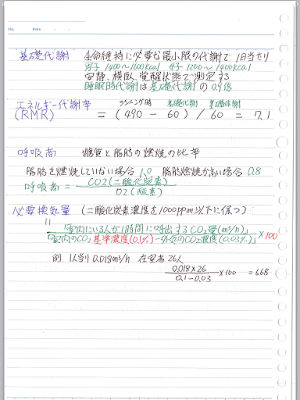 基礎代謝 生命維持に必要な最小限の代謝で 1日当り
男子 1400〜1600kcal 女子 1200〜1400kcal
安静、横臥、覚醒状態で測定する
睡眠時代謝は基礎代謝の 0.9倍
エネルギー代謝率
(RMR) = (490 − 60) / 60 = 7.1
呼吸商 糖質と脂肪の燃焼の比率
脂肪を燃焼していない場合 1.0 脂肪燃焼が多い場合 0.8
呼吸商 = CO2(二酸化炭素)
O2(酸素)
必要換気量 (二酸化炭素濃度を1000ppm以下に保つ)
=
「室内にいる人が1時間に呼出するCO2量(m³/h)」
「室内のCO2基準濃度(0.1%)−外気のCO2濃度(0.03%)」 ×100
例 1人当り 0.018m³/h 在室者 26人
0.018×26
0.1−0.03 ×100 = 668